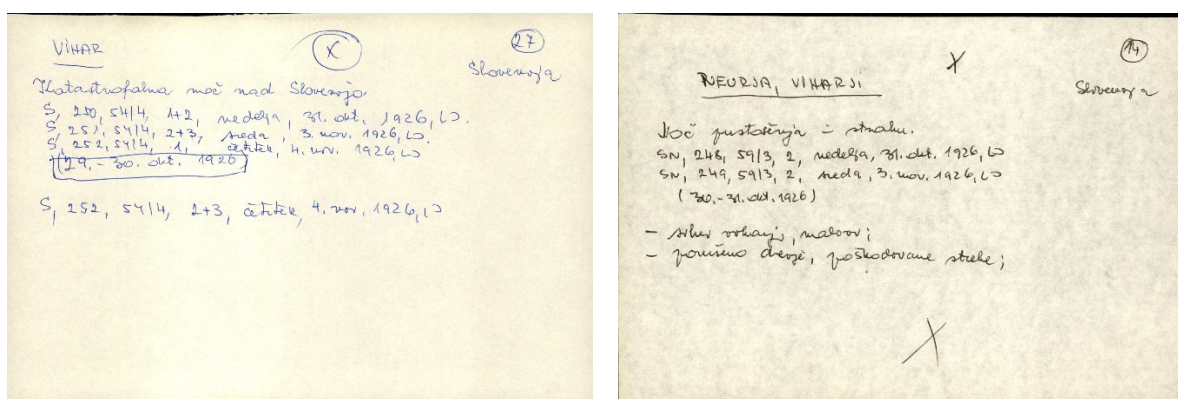 VIHAR
X
27
Slovenija
Katastrofalna noč nad Slovenijo.
S, 250, 54/4, 1+2, nedelja, 31. okt. 1926, LJ
S, 251, 54/4, 2+3, sreda, 3. nov. 1926, LJ.
S, 252, 54/4, 1, četrtek, 4. nov. 1926, LJ
(29.-30. okt. 1926
S, 252, 54/4, 2+3, četrtek, 4. nov. 1926, LJ
X
14
NEURJA, VIHARJI
Slovenija
Noč pustošenja in strahu.
SN, 248, 59/3, 2, nedelja, 31. okt. 1926, LJ
SN, 249, 59/3, 2, sreda, 3. nov. 1926, LJ
(30.-31. okt. 1926)
- vihar
- porušeno drevje, poškodovane strehe;
X